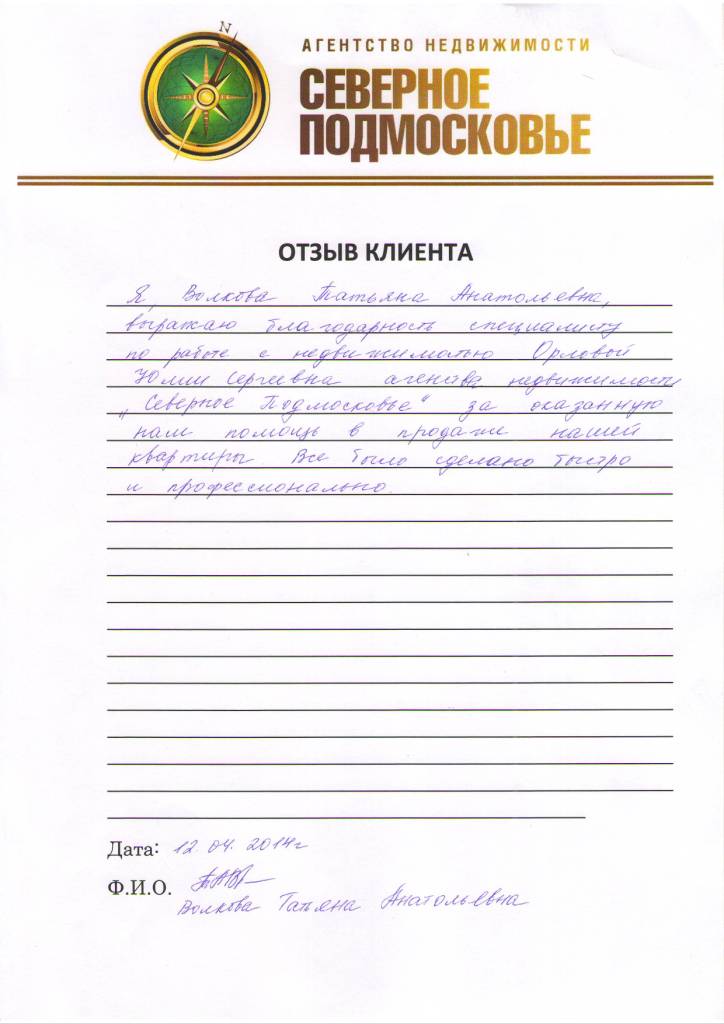 N
АГЕНТСТВО НЕДВИЖИМОСТИ
СЕВЕРНОЕ
ПОДМОСКОВЬЕ
ОТЗЫВ КЛИЕНТА
Я, Волкова Татьяна Анатольевна,
выражаю благодарность специалисту
по работе с недвижимостью Орловой
Юлии Сергеевна агенства недвижимости
„Северное Подмосковье" за оказанную
нам помощь в продаже нашей
квартиры Все было сделано быстро
и профессионально.
Дата: 12.04.2014г
Ф.И.О.
Волкова Татьяна Анатольевна